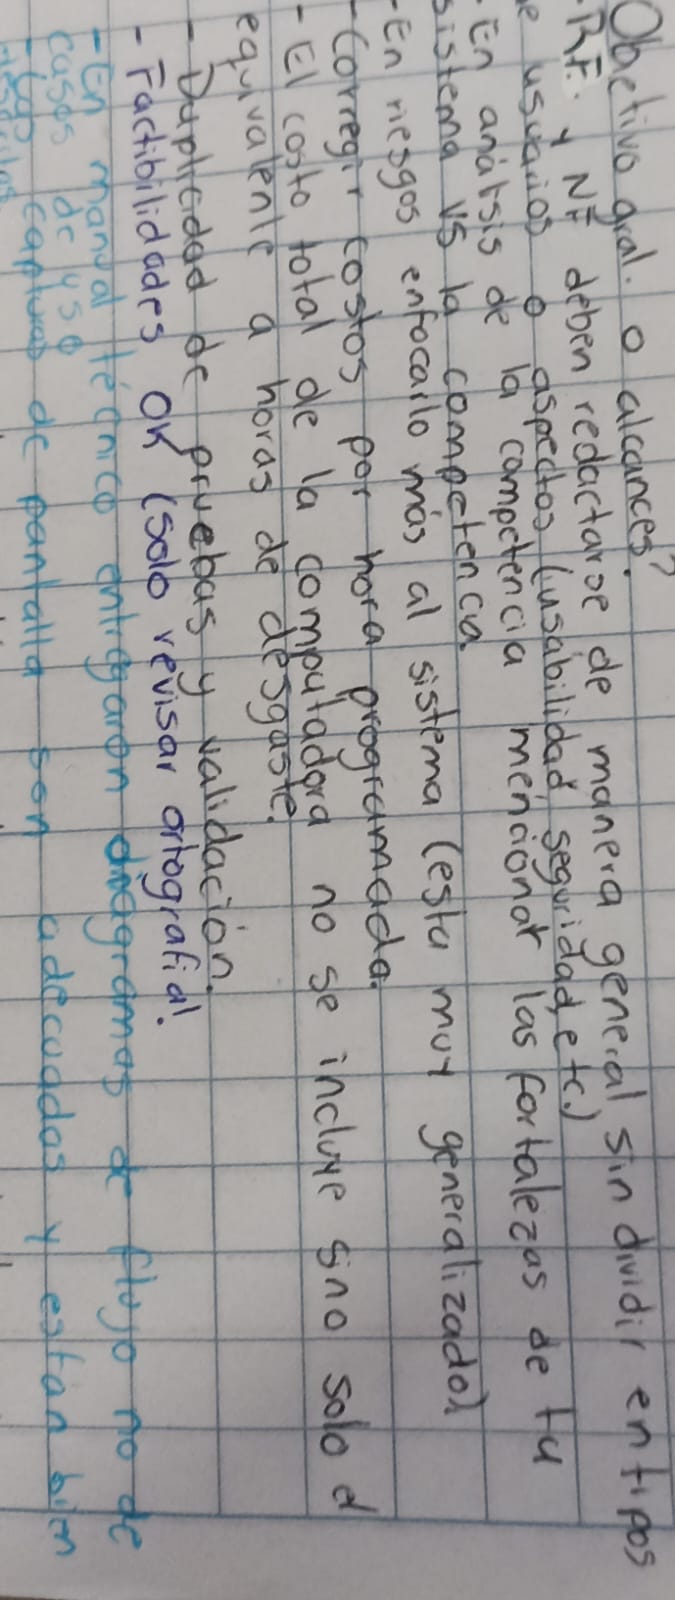 Objetivo gral. o alcances?
- RF. y NF deben redactarse de manera general sin dividir en tipos
e usuarios o aspectos (usabilidad, seguridad, etc.)
- En análsis de la competencia mencionar las fortalezas de tu
sistema vs la competencia.
- En riesgos enfocarlo más al sistema (esta muy generalizado)
- Corregir costos por hora programada.
- El costo total de la computadora no se incluye sino solo el
equivalente a horas de desgaste.
- Duplicidad de pruebas y validación.
- Factibilidades OK (solo revisar ortografía!.
- En manual técnico entregaron diagramas de flujo no de
casos de uso
- Las capturas de pantalla son adecuadas y estan bien